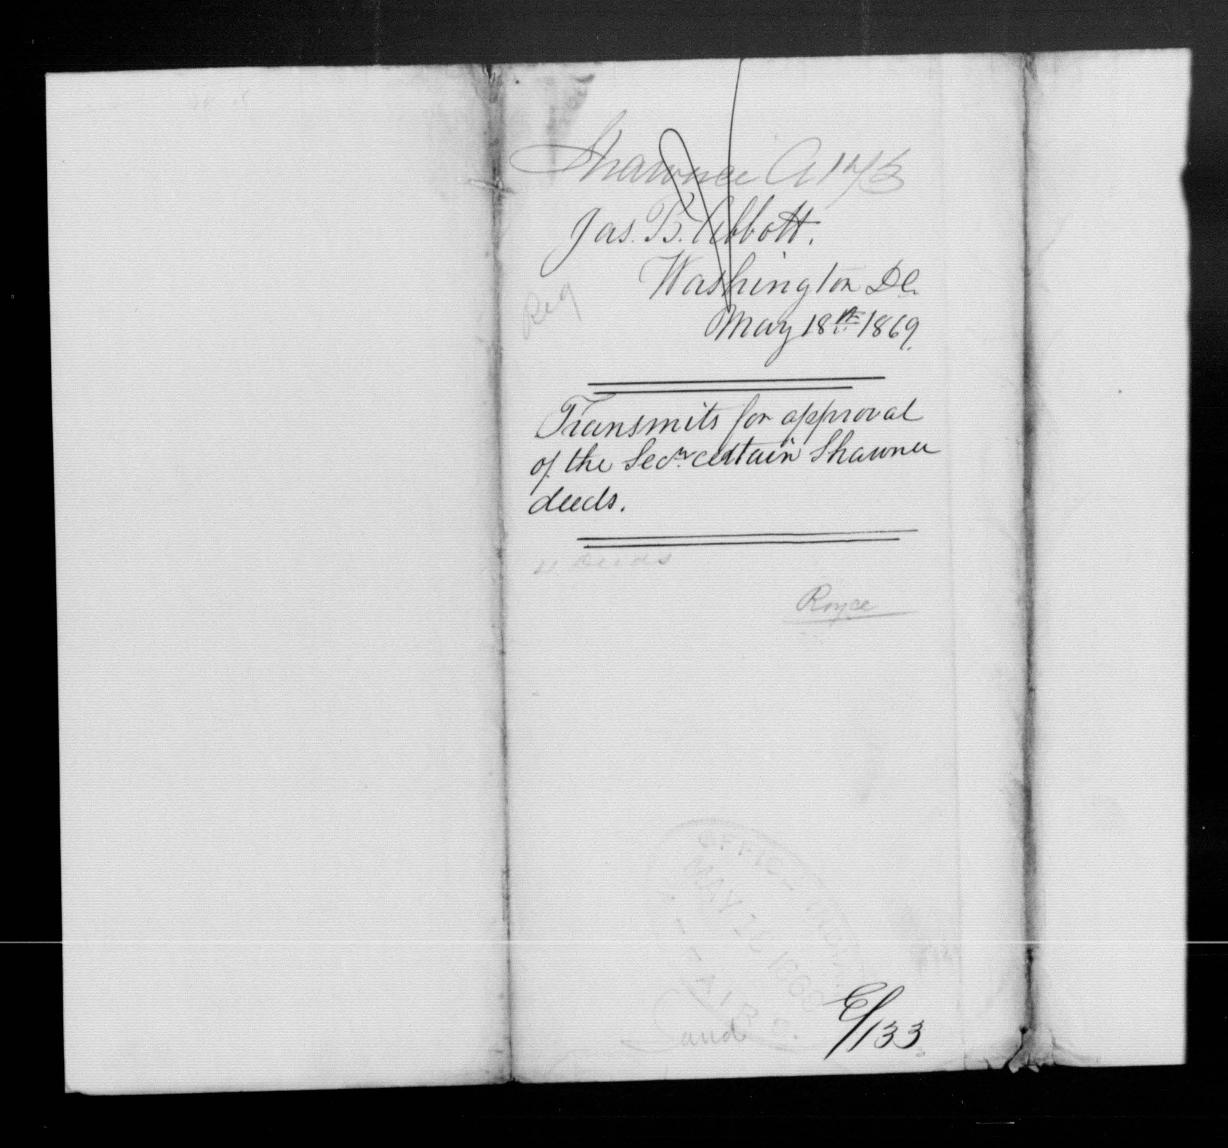 Shawnee A 173
Jas. B. Abbott,
Washington DC.
May 18th 1869.
Reg
Transmits for approval
of the Secy. certain Shawnee
deeds.
Deeds
Royce
OFFICE INDIAN
MAY
Land
E/133.